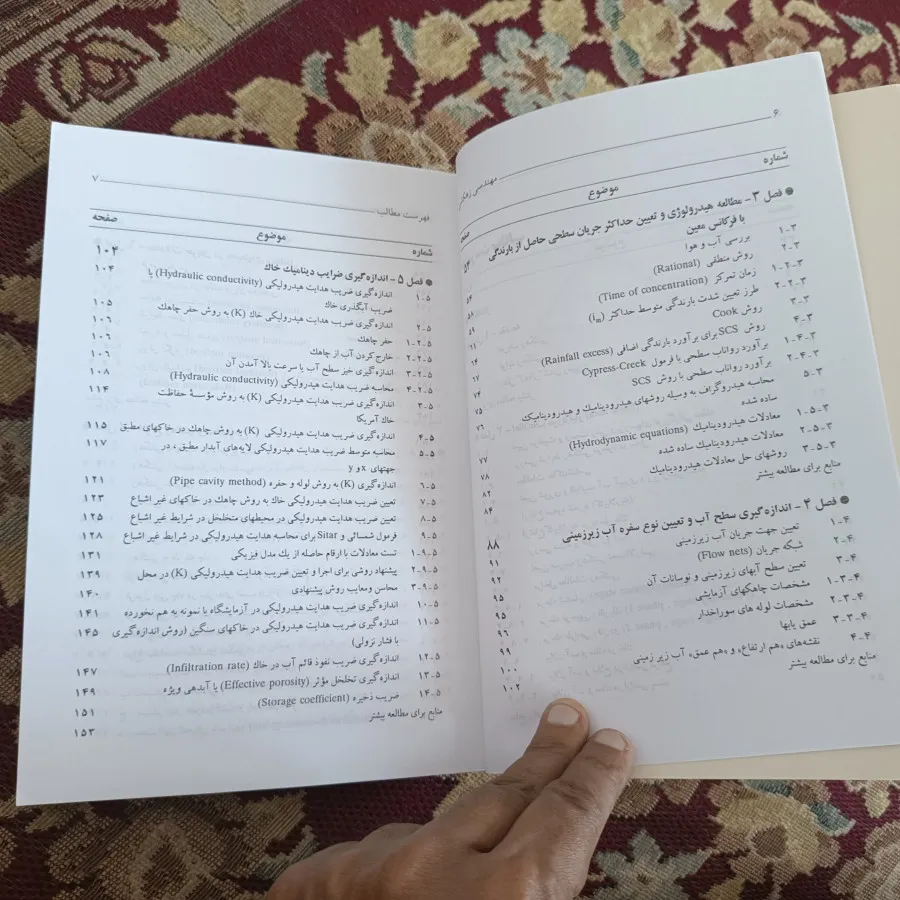 ۶
مهندسی
شماره
موضوع
صفحه
● فصل ۳ - مطالعه هیدرولوژی و تعیین حداکثر جریان سطحی حاصل از بارندگی
با فرکانس معین ۵۴
۳-۱ بررسی آب و هوا ۵۴
۳-۲ روش منطقی (Rational) ۵۸
۳-۲-۱ زمان تمرکز (Time of concentration) ۵۹
۳-۲-۲ طرز تعیین شدت بارندگی متوسط حداکثر (im)
۳-۳ روش Cook ۶۴
۳-۴ روش SCS برای برآورد بارندگی اضافی (Rainfall excess) ۶۷
۳-۴-۱ برآورد رواناب سطحی با فرمول Cypress-Creek ۷۴
۳-۴-۲ برآورد رواناب سطحی با روش SCS ۷۵
۳-۵ محاسبه هیدروگراف به وسیله روشهای هیدرودینامیك و هیدرودینامیك ۷۶
ساده شده
۳-۵-۱ معادلات هیدرودینامیك (Hydrodynamic equations) ۷۷
۳-۵-۲ معادلات هیدرودینامیك ساده شده ۷۸
۳-۵-۳ روشهای حل معادلات هیدرودینامیك ۸۲
منابع برای مطالعه بیشتر ۸۴
● فصل ۴ - اندازه‌گیری سطح آب و تعیین نوع سفره آب زیرزمینی ۸۸
۴-۱ تعیین جهت جریان آب زیرزمینی ۹۱
۴-۲ شبکه جریان (Flow nets) ۹۲
۴-۳ تعیین سطح آبهای زیرزمینی و نوسانات آن ۹۵
۴-۳-۱ مشخصات چاهکهای آزمایشی ۹۵
۴-۳-۲ مشخصات لوله های سوراخدار ۹۶
۴-۳-۳ عمق یابها ۹۹
۴-۴ نقشه‌های «هم ارتفاع» و «هم عمق» آب زیر زمینی ۱۰۰
منابع برای مطالعه بیشتر ۱۰۲
فهرست مطالب ۷
شماره
موضوع
صفحه
● فصل ۵ - اندازه‌گیری ضرایب دینامیك خاك ۱۰۴
۵-۱ اندازه‌گیری ضریب هدایت هیدرولیکی (Hydraulic conductivity) یا ۱۰۴
ضریب آبگذری خاك
۵-۲ اندازه‌گیری ضریب هدایت هیدرولیکی خاك (K) به روش حفر چاهك ۱۰۵
۵-۲-۱ حفر چاهك ۱۰۶
۵-۲-۲ خارج کردن آب از چاهك ۱۰۶
۵-۲-۳ اندازه‌گیری خیز سطح آب یا سرعت بالا آمدن آن ۱۰۶
۵-۲-۴ محاسبه ضریب هدایت هیدرولیکی (Hydraulic conductivity) ۱۰۸
۵-۳ اندازه‌گیری ضریب هدایت هیدرولیکی (K) به روش مؤسسهٔ حفاظت ۱۱۴
خاك آمریکا
۵-۴ اندازه‌گیری ضریب هدایت هیدرولیکی (K) به روش چاهك در خاکهای مطبق ۱۱۵
۵-۵ محاسبه متوسط ضریب هدایت هیدرولیکی لایه‌های آبدار مطبق ، در ۱۱۷
جهتهای x و y
۵-۶ اندازه‌گیری (K) به روش لوله و حفره (Pipe cavity method) ۱۲۱
۵-۷ تعیین ضریب هدایت هیدرولیکی خاك به روش چاهك در خاکهای غیر اشباع ۱۲۳
۵-۸ تعیین ضریب هدایت هیدرولیکی در محیطهای متخلخل در شرایط غیر اشباع ۱۲۵
۵-۹ فرمول شمسائی و Sitar برای محاسبه هدایت هیدرولیکی در شرایط غیر اشباع ۱۲۸
۵-۹-۱ تست معادلات با ارقام حاصله از یك مدل فیزیکی ۱۳۱
۵-۹-۲ پیشنهاد روشی برای اجرا و تعیین ضریب هدایت هیدرولیکی (K) در محل ۱۳۹
۵-۹-۳ محاسن ومعایب روش پیشنهادی ۱۴۰
۵-۱۰ اندازه‌گیری ضریب هدایت هیدرولیکی در آزمایشگاه با نمونه به هم نخورده ۱۴۱
۵-۱۱ اندازه‌گیری ضریب هدایت هیدرولیکی در خاکهای سنگین (روش اندازه‌گیری ۱۴۵
با فشار نزولی)
۵-۱۲ اندازه‌گیری ضریب نفوذ قائم آب در خاك (Infiltration rate) ۱۴۷
۵-۱۳ اندازه‌گیری تخلخل مؤثر (Effective porosity) یا آبدهی ویژه ۱۴۹
۵-۱۴ ضریب ذخیره (Storage coefficient) ۱۵۱
منابع برای مطالعه بیشتر ۱۵۳